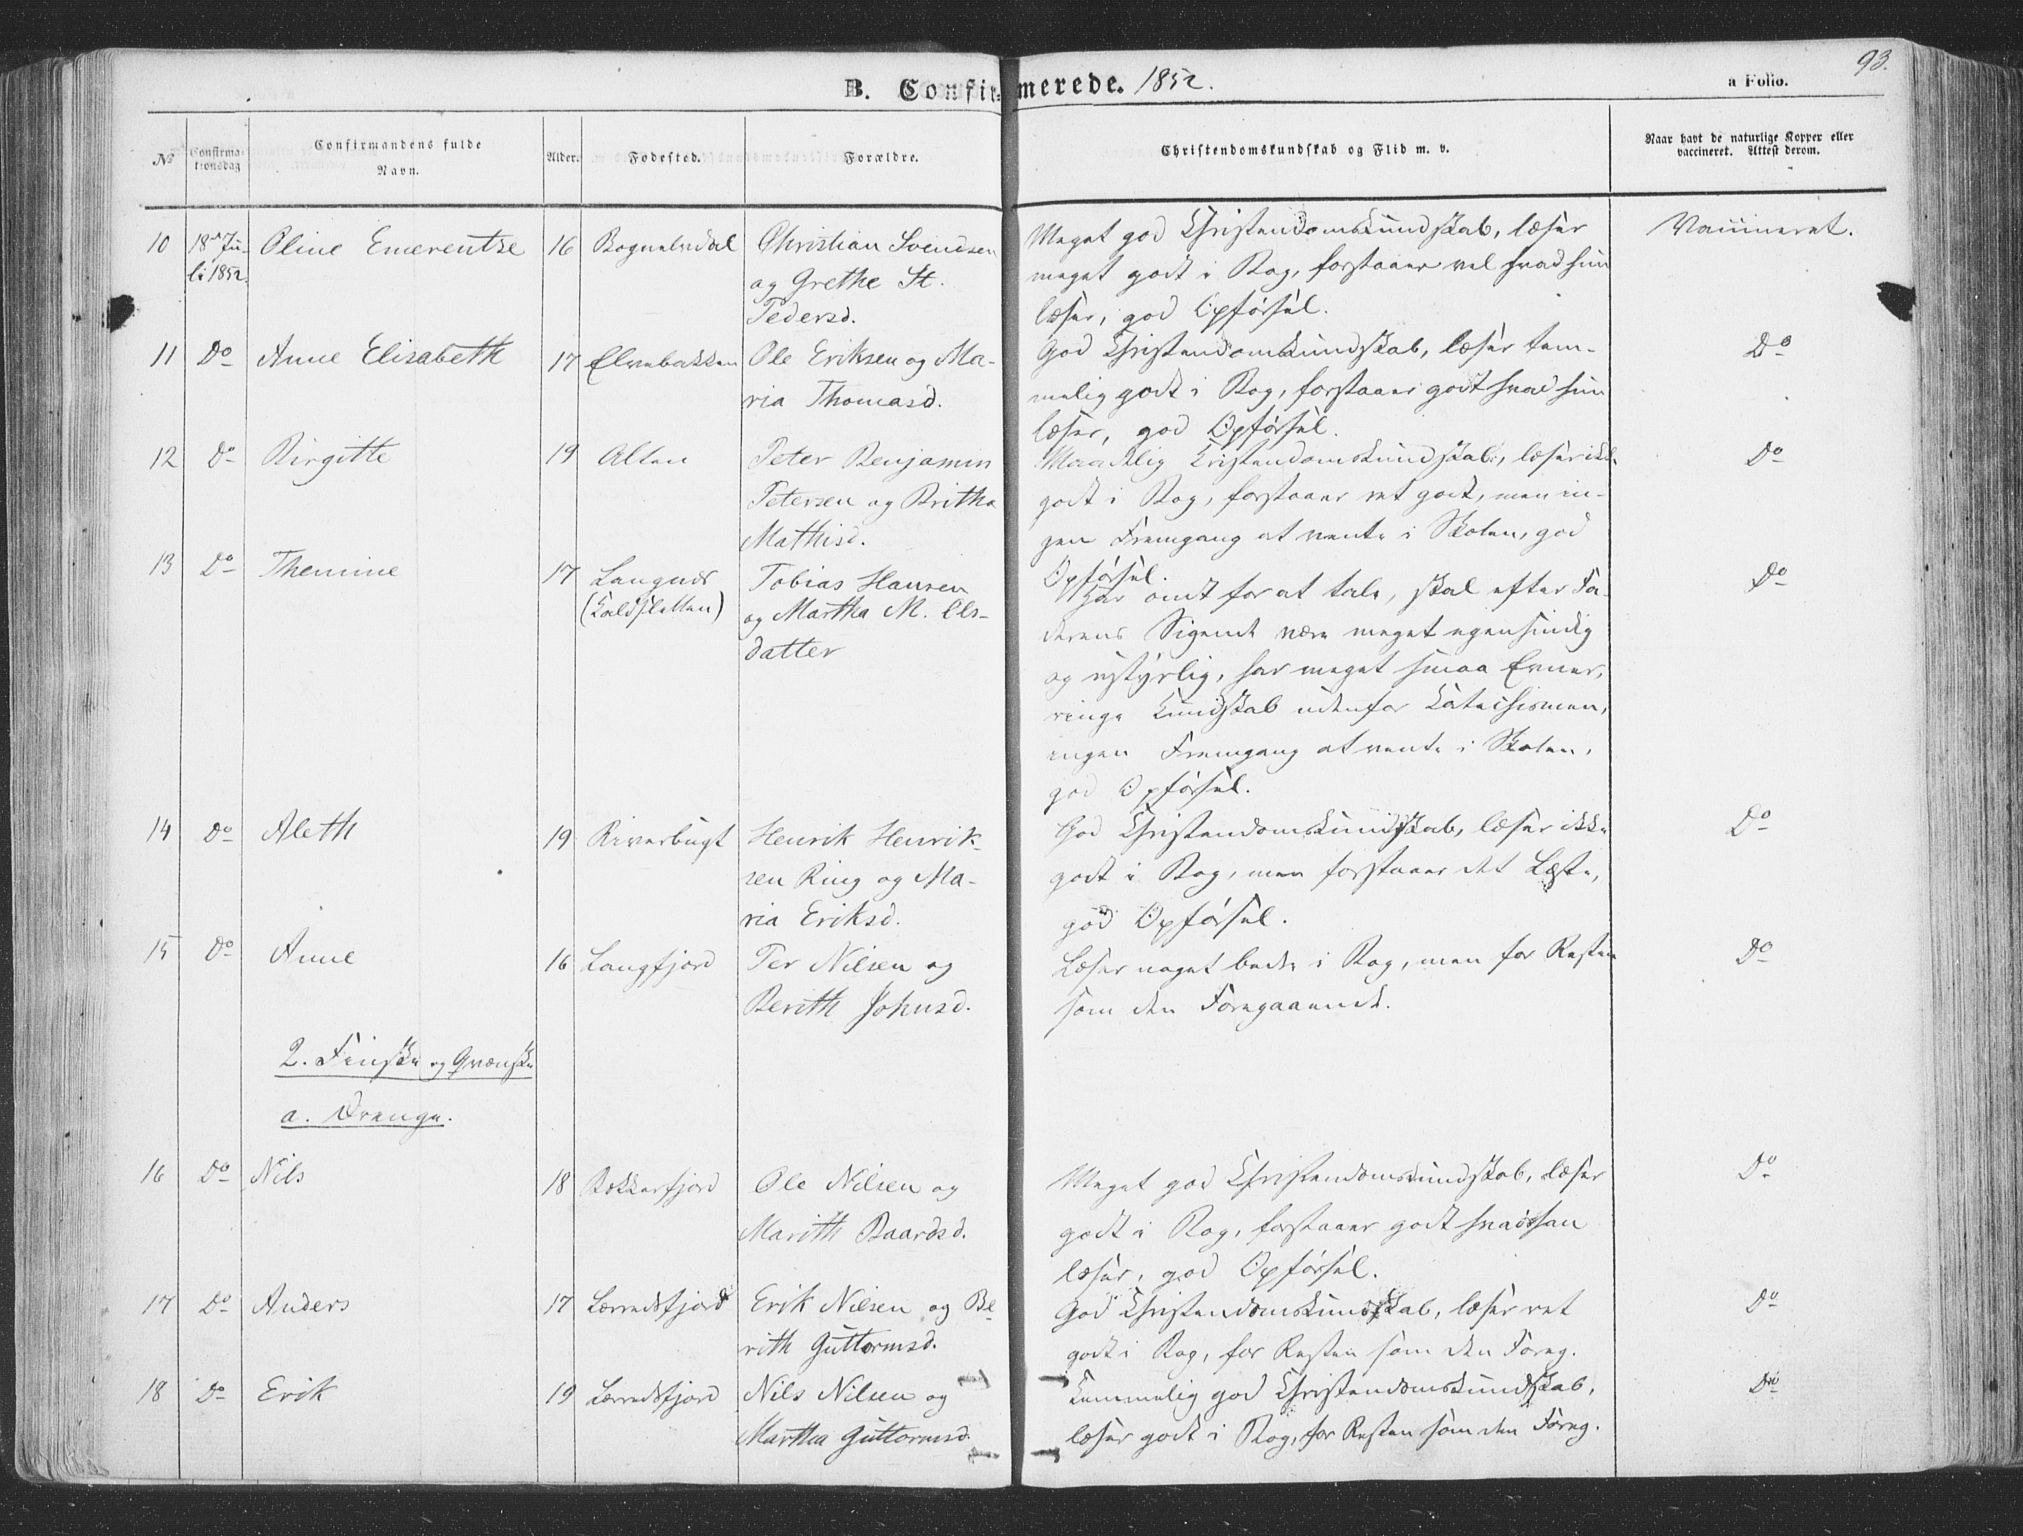 93.
B. Confirmerede. 1852.
a Folio.
No
Confirma-
tionsdag
Confirmandens fulde
Navn.
Alder.
Fødested.
Forældre.
Christendomskundskab og Flid m. v.
Naar havt de naturlige Kopper eller
vaccineret. Attest derom.
10 18de Ju- Oline Emerentse 16 Bognelvdal Christian Svendsen Meget god Christendomskundskab, læser Vaccineret.
li 1852. og Grethe St. meget godt i Bog, forstaaer vel hvad hun
Pedersd. læser, god Opførsel.
11 Do Anne Elisabeth 17 Elvebakken Ole Eriksen og Ma- God Christendomskundskab, læser tem- Do
ria Thomasd. melig godt i Bog, forstaaer godt hvad hun
læser, god Opførsel.
12 Do Birgitte 19 Alten Peter Benjamin Maadelig Kristendomskundskab, læser ikke Do
Petersen og Britha godt i Bog, forstaaer ret godt, men in-
Mathisd. gen Fremgang at vente i Skolen, god
Opførsel.
13 Do Themine 17 Langnes Tobias Hansen Har ondt for at tale, skal efter Fa- Do
(Kaldsletten) og Martha M. Ols- derens Sigende være meget egensindig
datter og ustyrlig, har meget smaa Evner,
ringe Kundskab udenfor Katechismen,
ingen Fremgang at vente i Skolen,
god Opførsel.
14 Do Aleth 19 Riverbugt Henrik Henrik- God Christendomskundskab, læser ikke Do
sen Ring og Ma- godt i Bog, men forstaaer det Læste,
ria Eriksd. god Opførsel.
15 Do Anne 16 Langfjord Per Nilsen og Læser noget bedre i Bog, men for Resten Do
Berith Johnsd. som den Foregaaende.
2. Finske og Qvænske
a. Drenge.
16 Do Nils 18 Rokkefjord Ole Nilsen og Meget god Christendomskundskab, læser Do
Marith Baardsd. godt i Bog, forstaaer godt hvad han
læser, god Opførsel.
17 Do Anders 17 Lerredsfjord Erik Nilsen og Be- God Christendomskundskab, læser ret Do
rith Guttormsd. godt i Bog, for Resten som den Foreg.
18 Do Erik 19 Lerredsfjord Nils Nilsen og Temmelig god Christendomskundskab, Do
Martha Guttormsd. læser godt i Bog, for Resten som den Foreg.